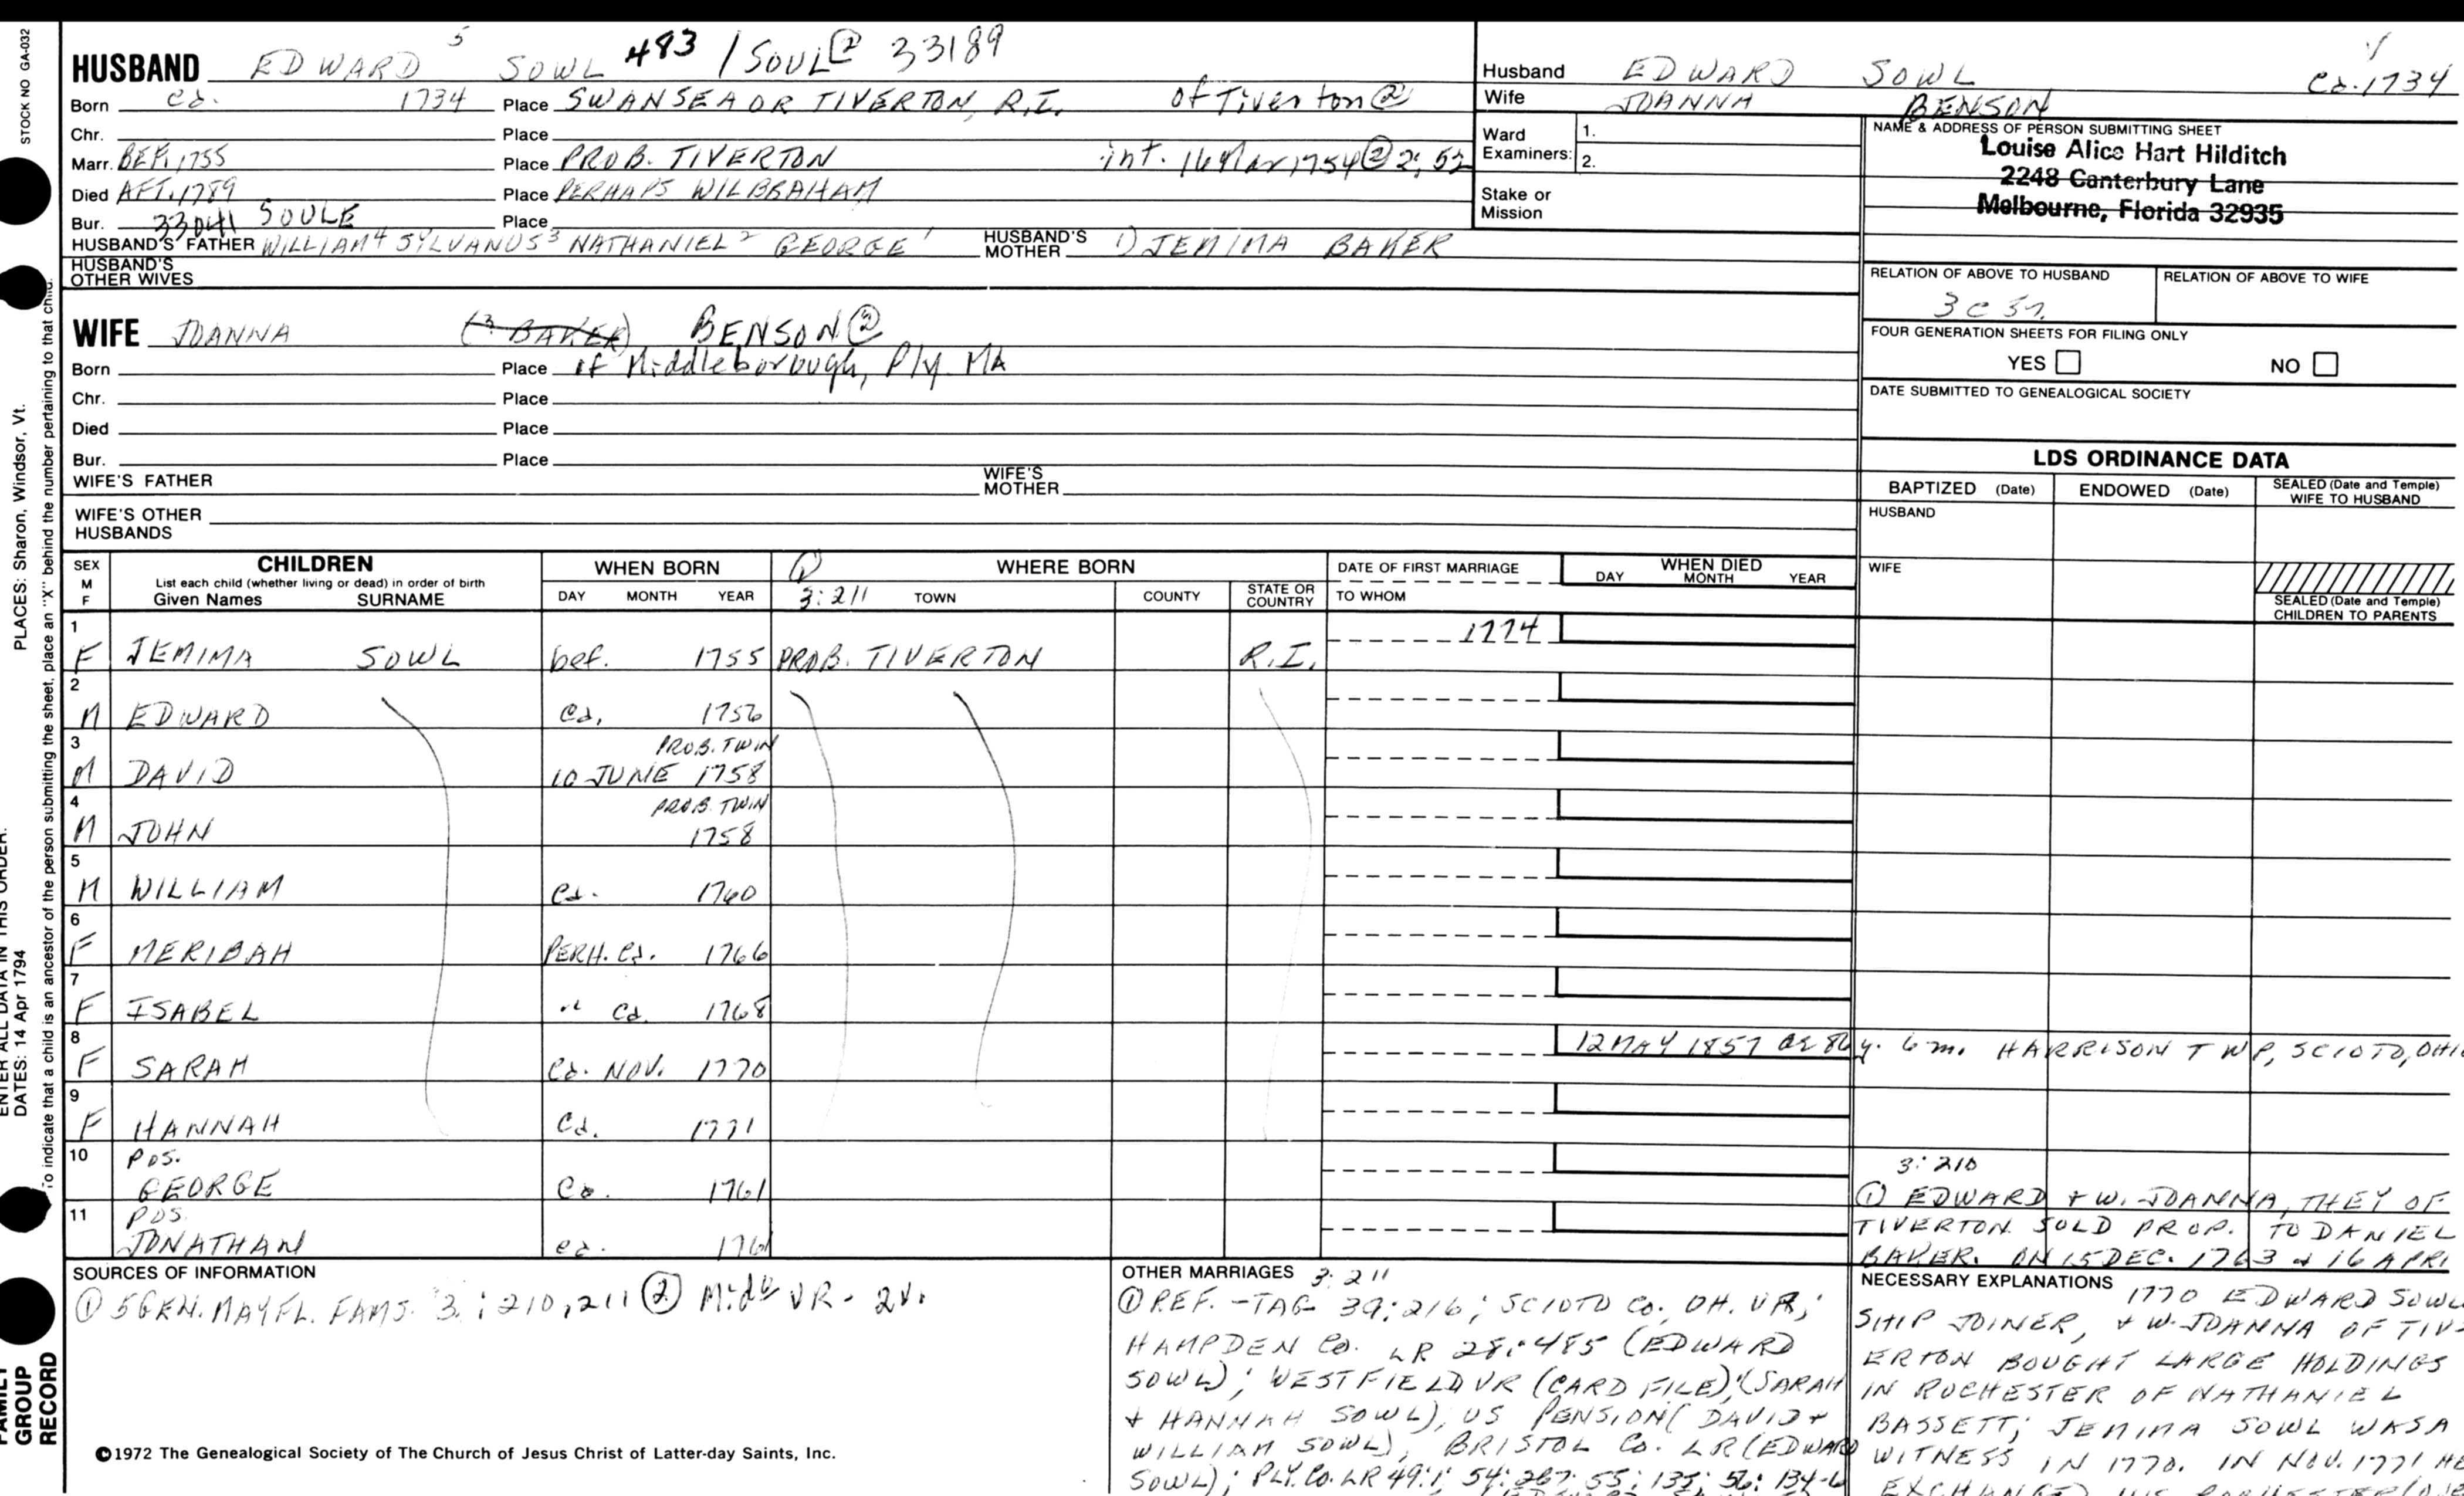 STOCK NO GA-032
PLACES: Sharon, Windsor, Vt.
ENTER ALL DATA IN THIS ORDER:
DATES: 14 Apr 1794
To indicate that a child is an ancestor of the person submitting the sheet, place an "X" behind the number pertaining to that child.
FAMILY GROUP RECORD
HUSBAND EDWARD 5 SOWL 483 / SOUL② 33189
Born ca. 1734 Place SWANSEA OR TIVERTON, R.I. of Tiverton②
Chr. Place
Marr. BEF. 1755 Place PROB. TIVERTON int. 16 Mar 1754② 2:52
Died AFT. 1789 Place PERHAPS WILBRAHAM
Bur. 33041 SOULE Place
HUSBAND'S FATHER WILLIAM 4 SYLVANUS 3 NATHANIEL 2 GEORGE 1 HUSBAND'S MOTHER 1) JEMIMA BAKER
HUSBAND'S OTHER WIVES
WIFE JOANNA (? BAKER) BENSON②
Born Place of Middleborough, Ply. MA
Chr. Place
Died Place
Bur. Place
WIFE'S FATHER WIFE'S MOTHER
WIFE'S OTHER HUSBANDS
Husband EDWARD SOWL ca. 1734
Wife JOANNA BENSON
Ward Examiners: 1. 2.
Stake or Mission
NAME & ADDRESS OF PERSON SUBMITTING SHEET
Louise Alice Hart Hilditch
2248 Canterbury Lane
Melbourne, Florida 32935
RELATION OF ABOVE TO HUSBAND RELATION OF ABOVE TO WIFE
3C
FOUR GENERATION SHEETS FOR FILING ONLY
YES NO
DATE SUBMITTED TO GENEALOGICAL SOCIETY
LDS ORDINANCE DATA
BAPTIZED (Date) ENDOWED (Date) SEALED (Date and Temple) WIFE TO HUSBAND
HUSBAND
WIFE
SEALED (Date and Temple) CHILDREN TO PARENTS
SEX M F CHILDREN WHEN BORN ① WHERE BORN DATE OF FIRST MARRIAGE WHEN DIED
List each child (whether living or dead) in order of birth
Given Names SURNAME DAY MONTH YEAR 3:211 TOWN COUNTY STATE OR COUNTRY TO WHOM DAY MONTH YEAR
1 F JEMIMA SOWL bef. 1755 PROB. TIVERTON R.I. 1774
2 M EDWARD ca. 1756
3 M DAVID 10 JUNE 1758 PROB. TWIN
4 M JOHN 1758 PROB. TWIN
5 M WILLIAM ca. 1760
6 F MERIBAH PERH. ca. 1766
7 F ISABEL " ca. 1768
8 F SARAH ca. NOV. 1770 12 MAY 1857 ae 86y. 6m. HARRISON TWP, SCIOTO, OHI
9 F HANNAH ca. 1771
10 POS. GEORGE ca. 1761
11 POS. JONATHAN ca. 1761
3:210
① EDWARD + W. JOANNA, THEY OF
TIVERTON SOLD PROP. TO DANIEL
BAKER. ON 15 DEC. 1763 + 16 APRI
SOURCES OF INFORMATION
① 5 GEN. MAYFL. FAMS. 3:210,211 ② Midb VR - 2v.
©1972 The Genealogical Society of The Church of Jesus Christ of Latter-day Saints, Inc.
OTHER MARRIAGES 3:211
① REF. - TAG 39:216; SCIOTO CO. OH. VR;
HAMPDEN CO. LR 28:485 (EDWARD
SOWL); WESTFIELD VR (CARD FILE); (SARAH
+ HANNAH SOWL), US PENSION (DAVID +
WILLIAM SOWL), BRISTOL CO. LR (EDWARD
SOWL); PLY. CO. LR 49:1; 54:267; 55:135; 56:134-6
NECESSARY EXPLANATIONS 1770 EDWARD SOWL
SHIP JOINER, + W. JOANNA OF TIV-
ERTON BOUGHT LARGE HOLDINGS
IN ROCHESTER OF NATHANIEL
BASSETT; JEMIMA SOWL WAS A
WITNESS IN 1770. IN NOV. 1771 HE